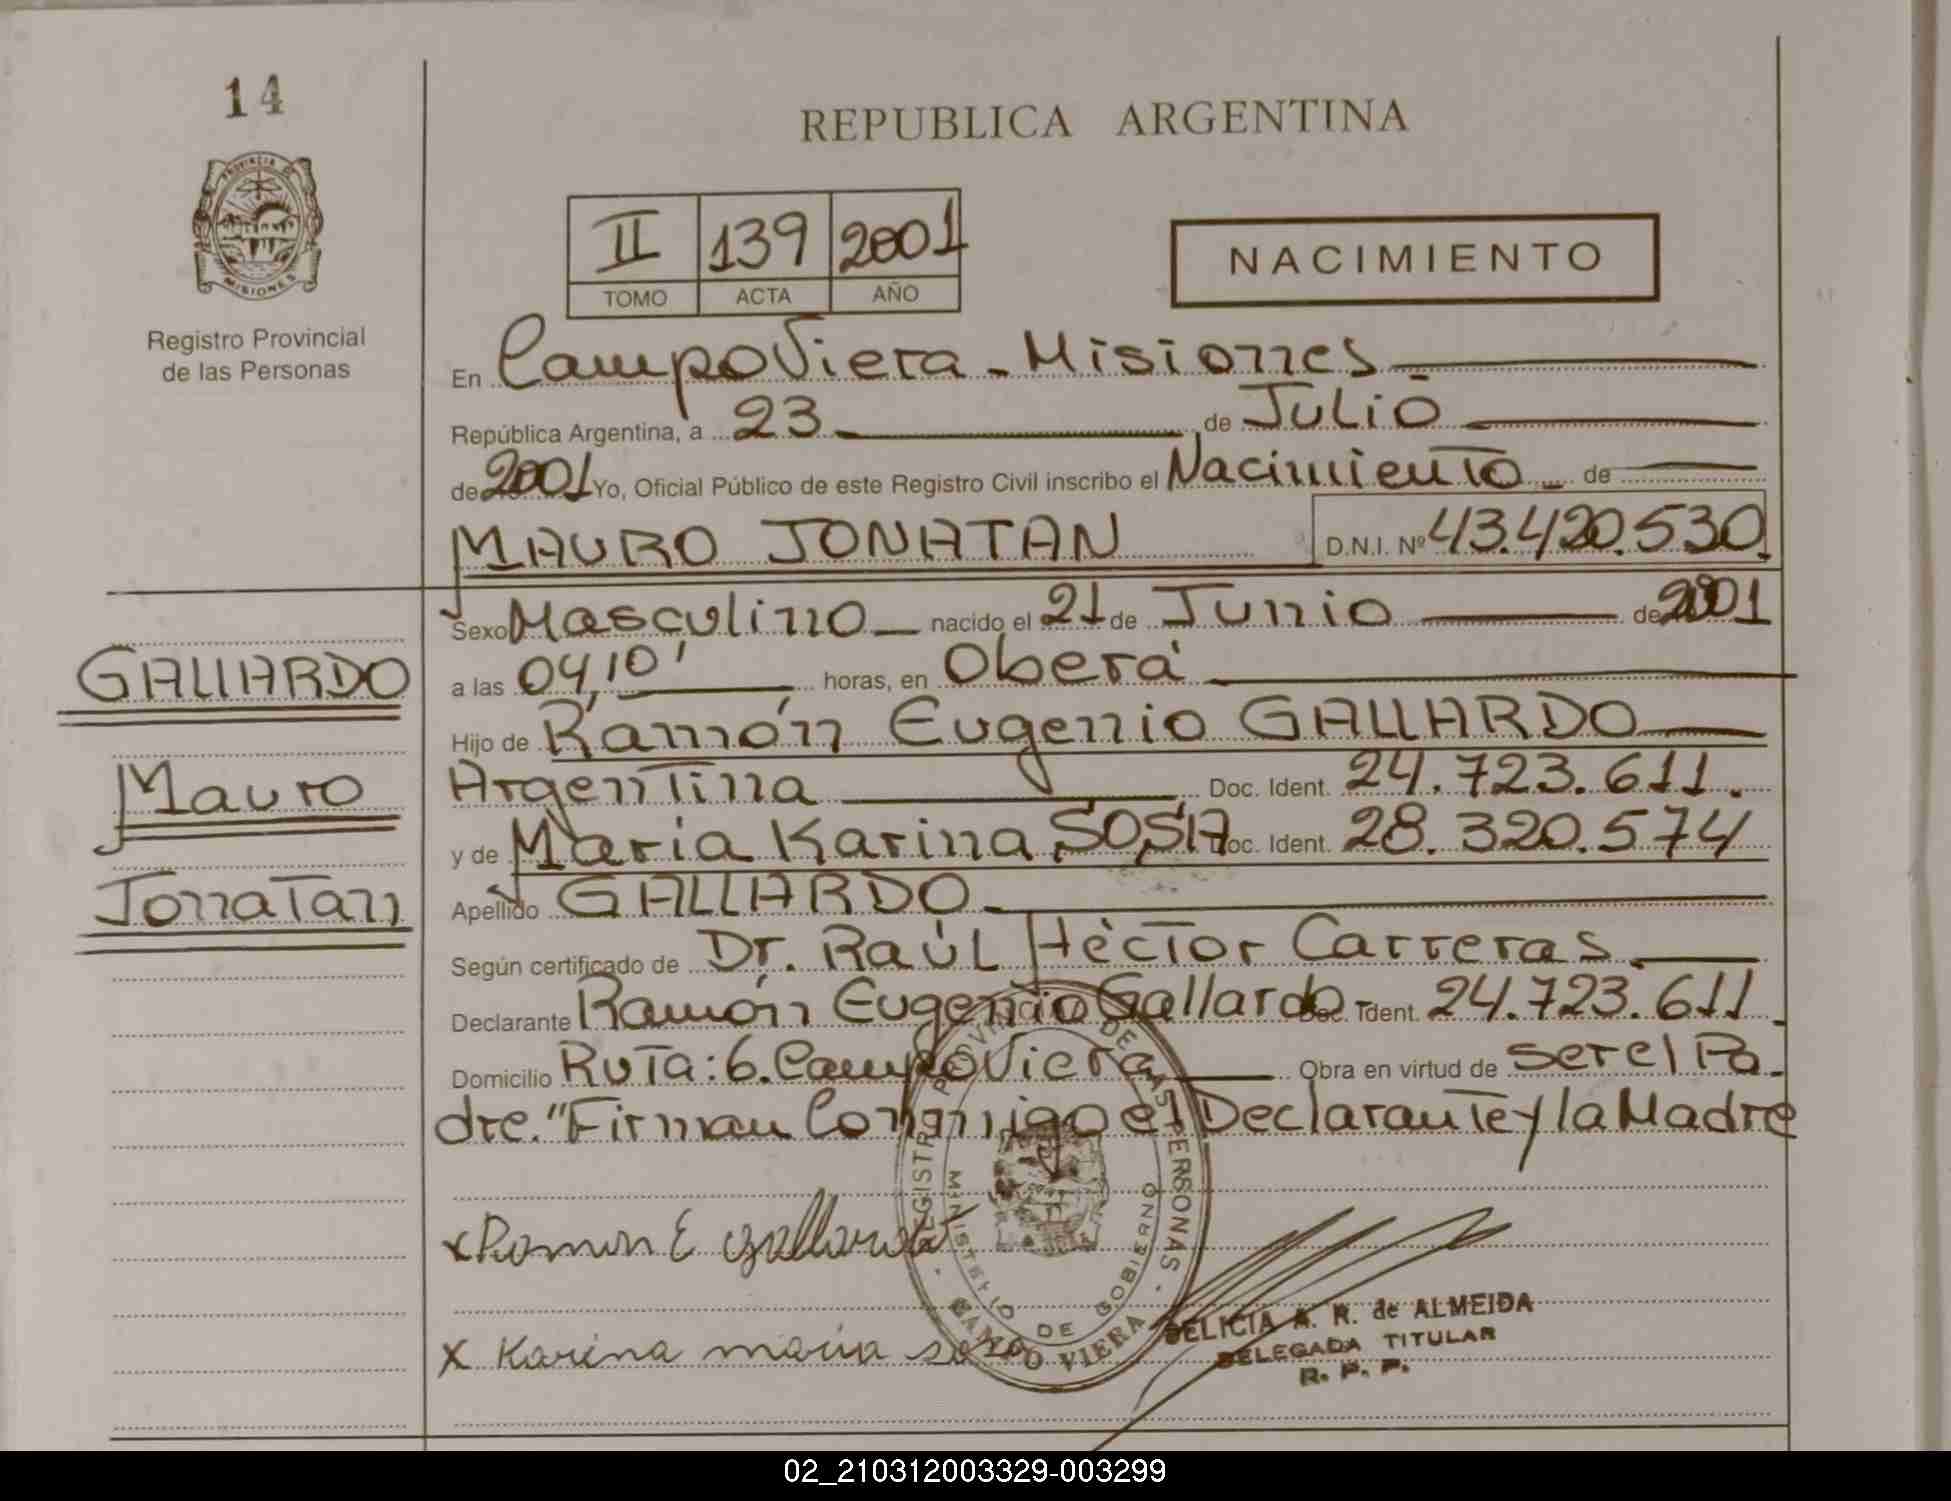 14
REPUBLICA ARGENTINA
PROVINCIA DE
MISIONES
Registro Provincial
de las Personas
II 139 2001
TOMO ACTA AÑO
NACIMIENTO
En Campo Viera - Misiones
República Argentina, a 23 de Julio
de 2001 Yo, Oficial Público de este Registro Civil inscribo el Nacimiento de
MAURO JONATAN D.N.I. Nº 43.420.530.
Sexo Masculino nacido el 21 de Junio de 2001
GALLARDO
a las 04,10' horas, en Oberá
Hijo de Ramón Eugenio GALLARDO
Mauro
Argentina Doc. Ident. 24.723.611.
y de María Karina SOSA Doc. Ident. 28.320.574
Jonatan
Apellido GALLARDO
Según certificado de Dr. Raúl Héctor Carreras
Declarante Ramón Eugenio Gallardo Doc. Ident. 24.723.611.
Domicilio Ruta: 6. Campo Viera Obra en virtud de ser el Pa-
dre. "Firman Conmigo el Declarante y la Madre
x Ramon E gallardo
x Karina maria sosa
REGISTRO PROVINCIAL DE LAS PERSONAS
MINISTERIO DE GOBIERNO
CAMPO VIERA
DELICIA A. R. de ALMEIDA
DELEGADA TITULAR
R. P. P.
02_210312003329-003299